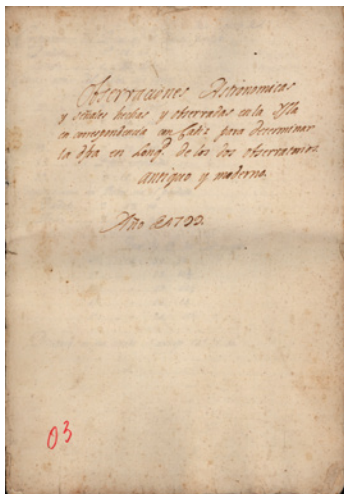 Observaciones Astronomicas
y señales hechas y observadas en la Ysla
en correspondencia con Cadiz para determinar
la dfa en Longd. de los dos observatorios
antiguo y moderno.
Año de 1799.
03